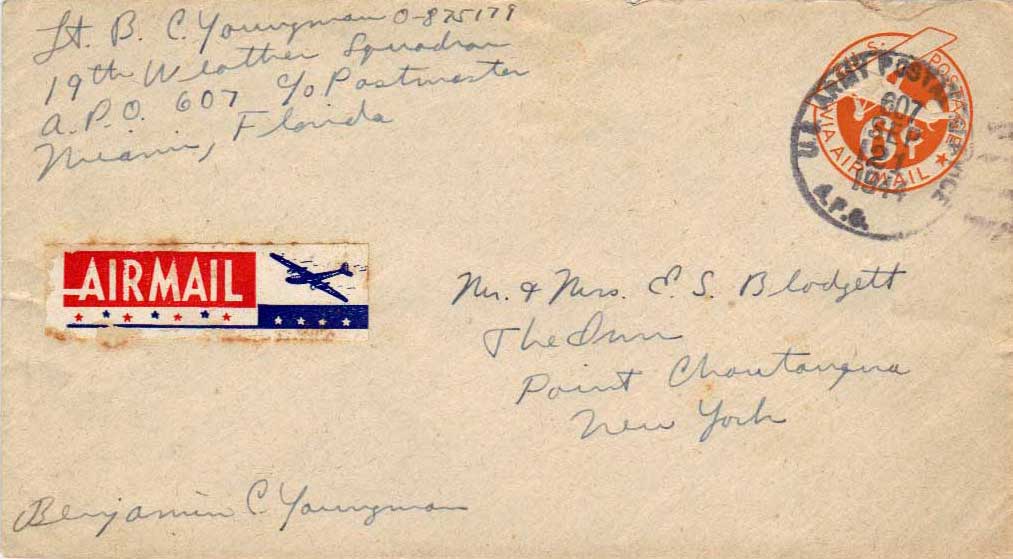 Lt. B. C. Youngman O-875179
19th Weather Squadron
A.P.O. 607 c/o Postmaster
Miami, Florida
U.S. POSTAGE
VIA AIRMAIL
6¢
U.S. ARMY POSTAL SERVICE
607
SEP
21
1944
A.P.O.
AIRMAIL
Mr. & Mrs. E. S. Blodgett
The Inn
Point Chautauqua
New York
Benjamin C Youngman